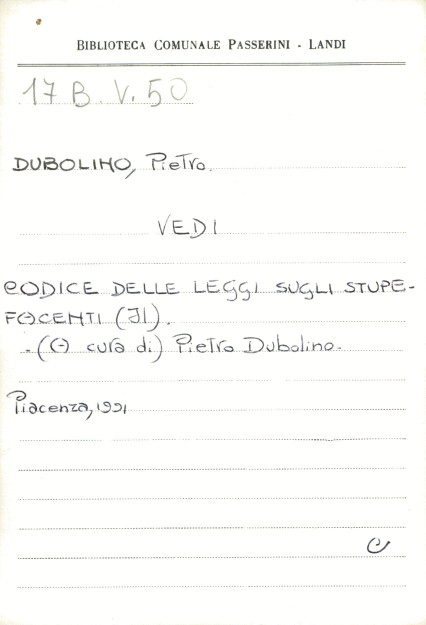 BIBLIOTECA COMUNALE PASSERINI - LANDI
17 B. V. 50
DUBOLINO, Pietro.
VEDI
CODICE DELLE LEGGI SUGLI STUPE-
FACENTI (Il).
.(A cura di) Pietro Dubolino.
Piacenza, 1991
C